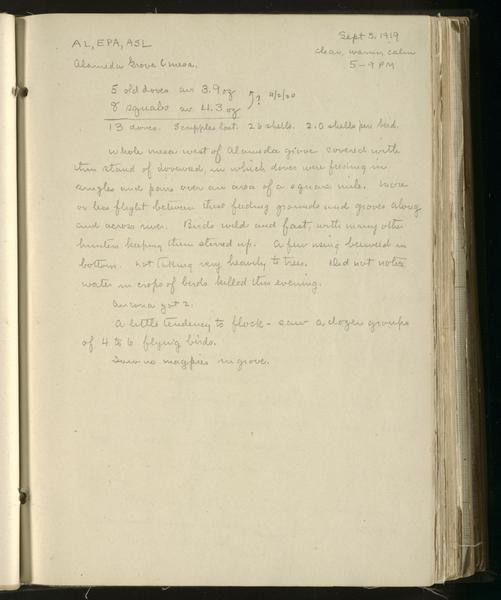 AL, EPA, ASL
Sept 3, 1919
Clear, warm, calm
Alameda Grove & mesa.
5-9 PM
5 old doves av 3.9 oz
8 squabs av 4.3 oz
?
13 doves. 3 cripples lost. 26 shells. 2.0 shells per bird.
Whole mesa west of Alameda grove covered with
thin stand of doveweed, in which doves were feeding in
singles and pairs over an area of a square mile. More
or less flight between these feeding grounds and groves along
and across river. Birds wild and fast, with many other
hunters keeping them stirred up. A few using beeweed in
bottom. Not taking very heavily to trees. Did not notice
water in crops of birds killed this evening.
got 2.
A little tendency to flock - saw a dozen groups
of 4 to 6 flying birds.
Saw no magpies in grove.